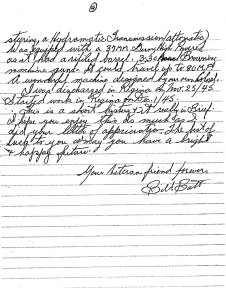 steering, a Hydromatic Transmission (automatic)
was equipped with a 37MM Gun, High Powered
as it had a rifled barrel. 3, 30 Browning
machine guns. It could travel up to 80 MPH
A wonderful machine designed by
I was discharged in Regina on Nov. 25/45
Started work in Regina 1/45
This is a short history of in Brief.
I hope you enjoy this as much as I
did your letter of appreciation. The best of
luck to you & may you have a bright
& happy future.
Your Veteran friend forever
Bill Batt